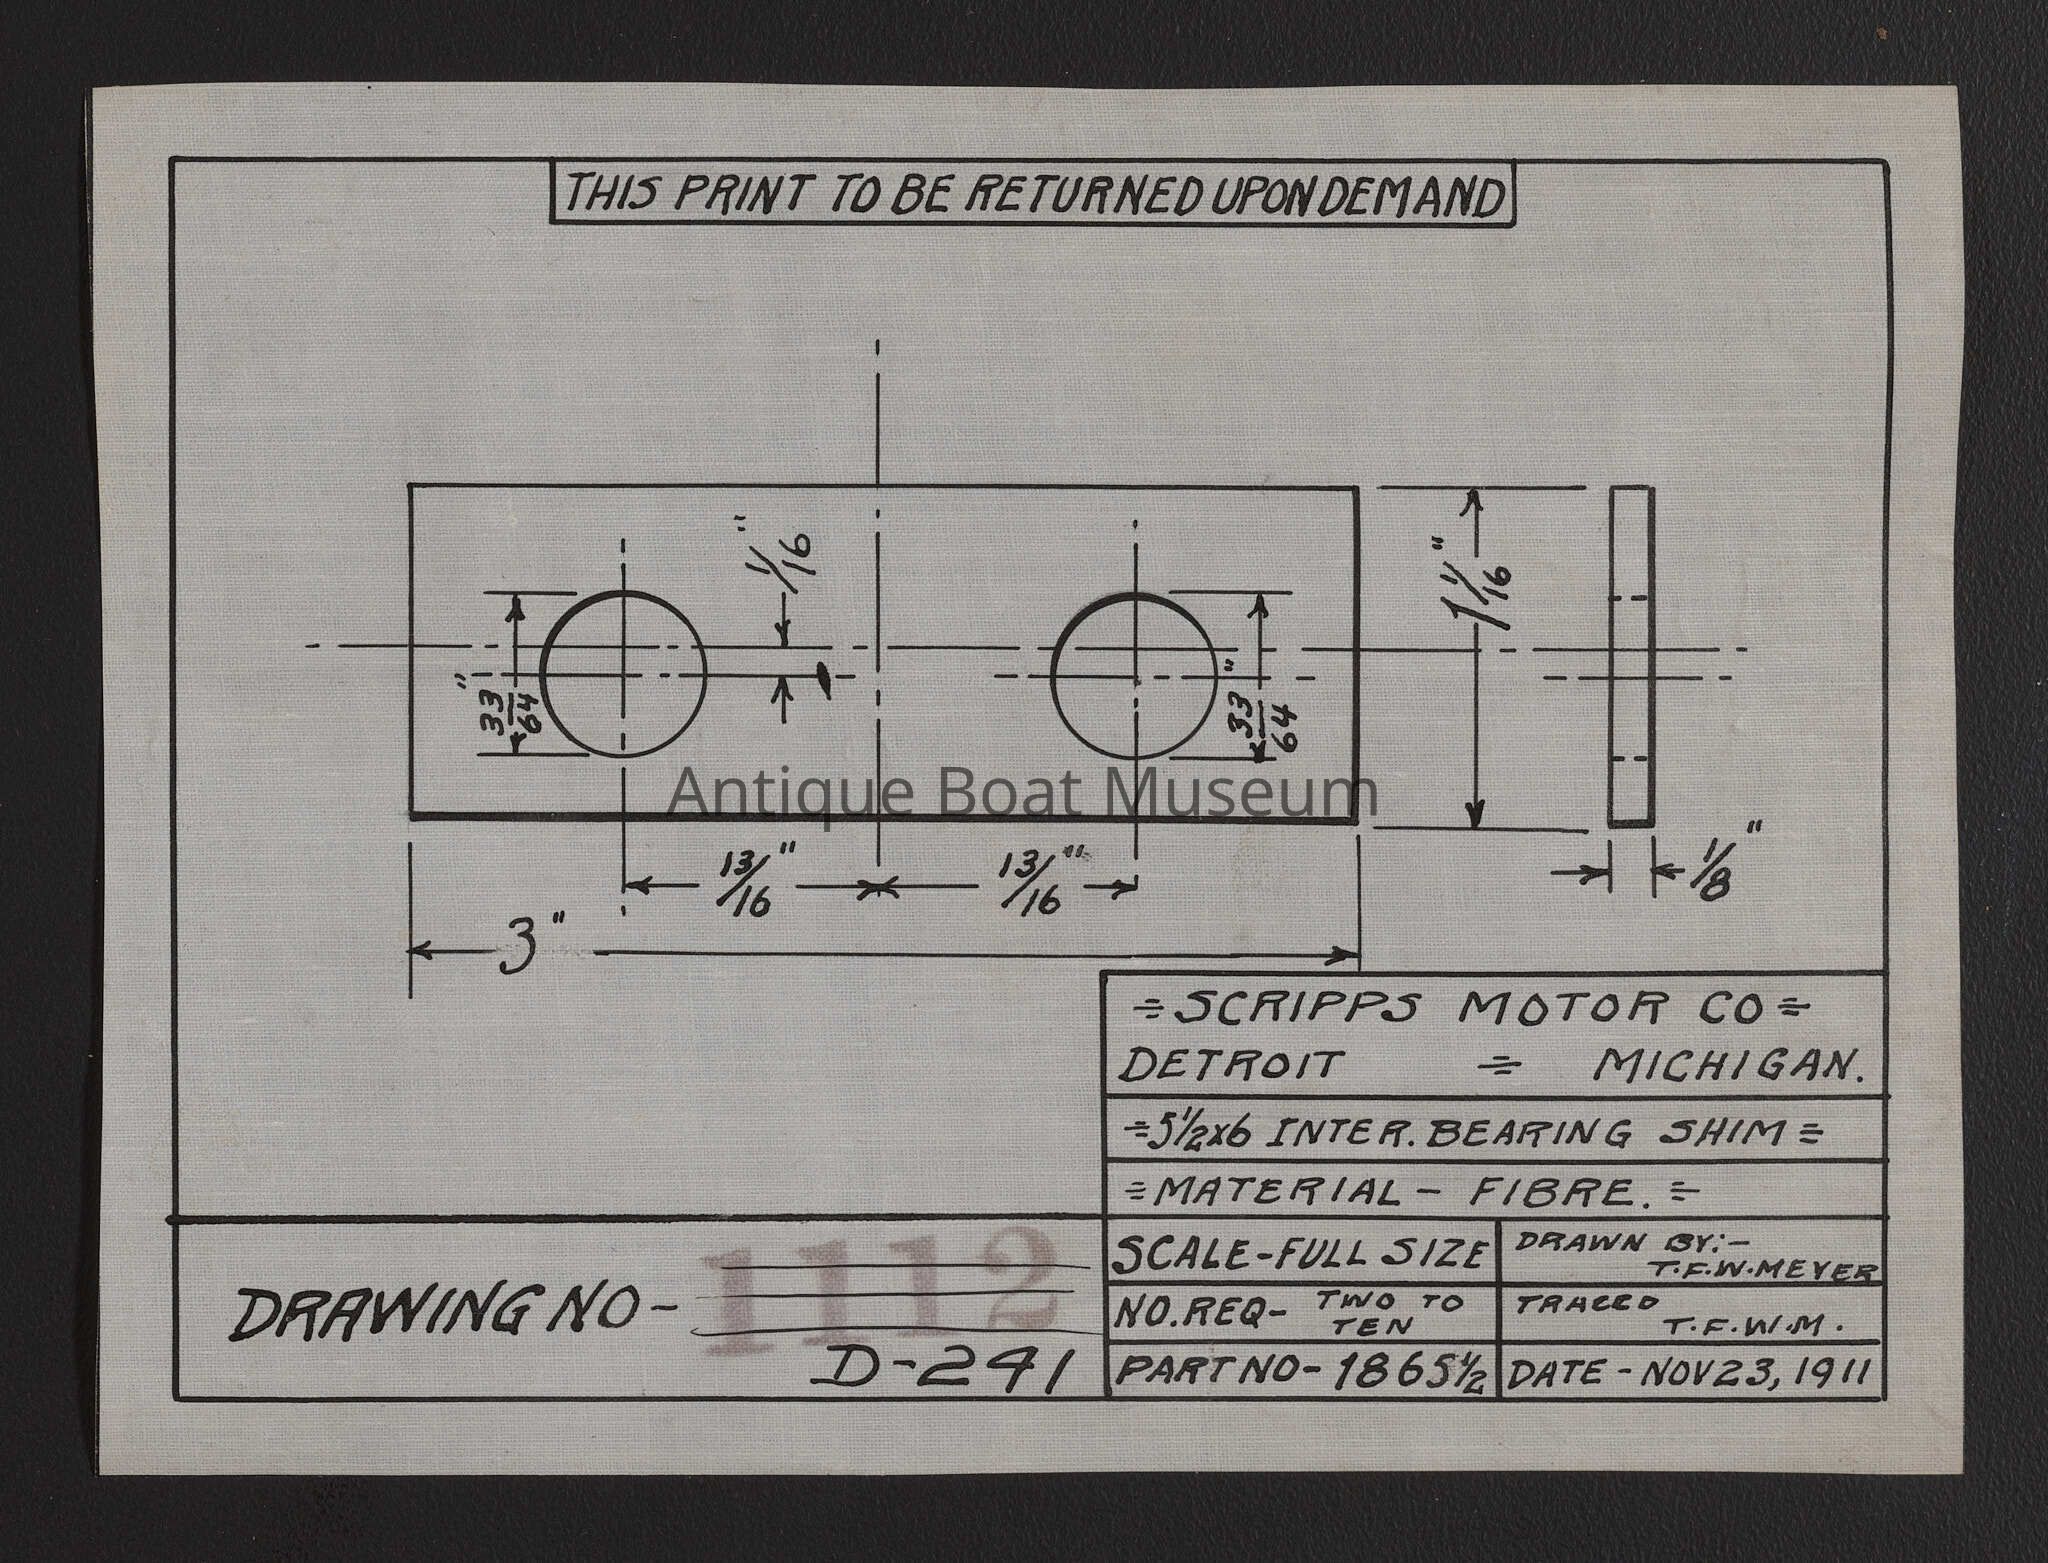 THIS PRINT TO BE RETURNED UPON DEMAND
1/16"
33/64"
33/64"
1 1/16"
Antique Boat Museum
13/16"
13/16"
1/8"
3"
=SCRIPPS MOTOR CO=
DETROIT = MICHIGAN.
=5½x6 INTER. BEARING SHIM=
=MATERIAL - FIBRE.=
SCALE-FULL SIZE
DRAWN BY:-
T.F.W.MEYER
NO.REQ- TWO TO
TEN
TRACED
T.F.W.M.
PART NO- 1865½
DATE - NOV 23, 1911
DRAWING NO- 1112
D-241